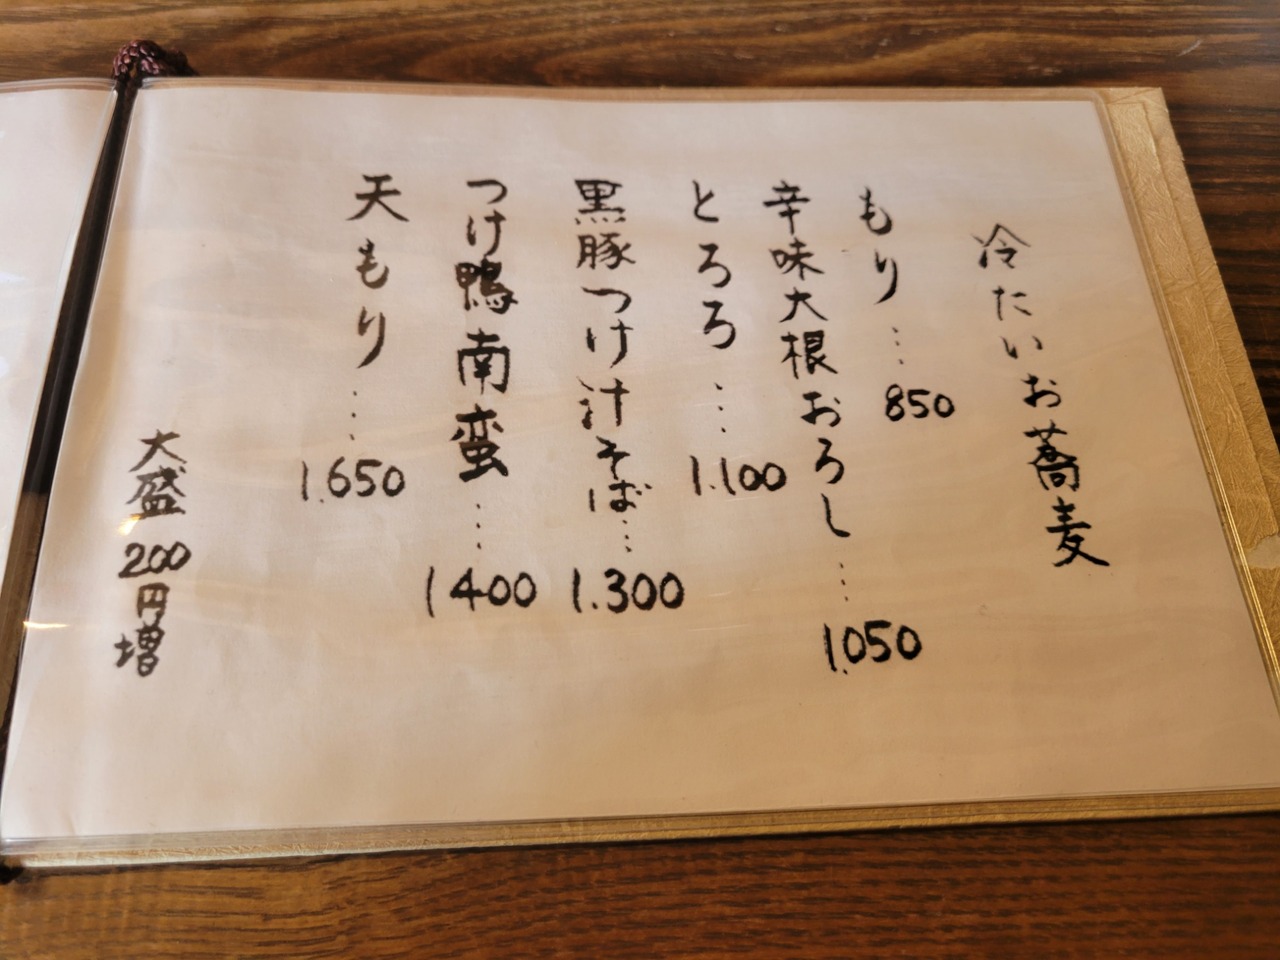 冷たいお蕎麦
もり…850
辛味大根おろし…1.050
とろろ…1.100
黒豚つけ汁そば…1.300
つけ鴨南蛮…1400
天もり…1.650
大盛200円増